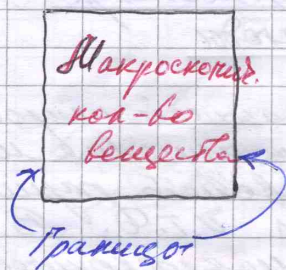 Макроскопич.
кол-во
вещества
Границы